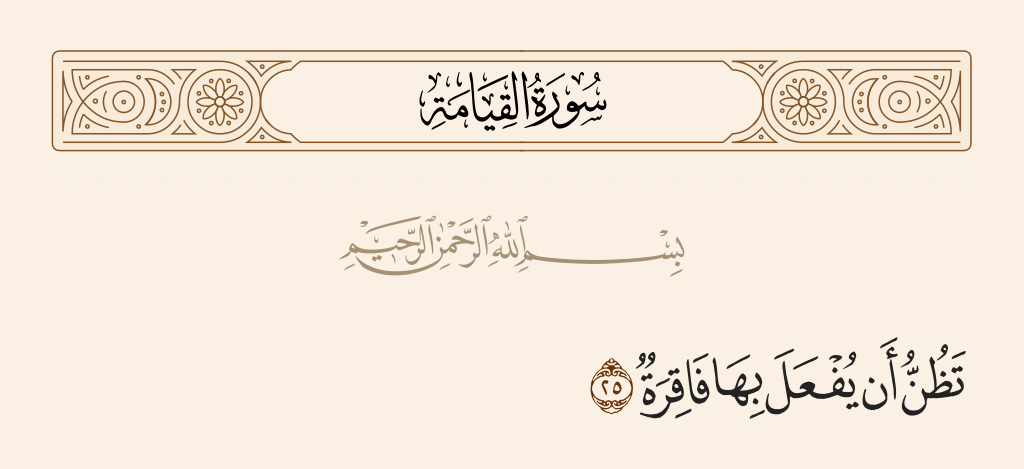 سُورَةُ القِيَامَةِ
بِسْمِ ٱللَّهِ ٱلرَّحْمَٰنِ ٱلرَّحِيمِ
تَظُنُّ أَن يُفْعَلَ بِهَا فَاقِرَةٌ ٢٥